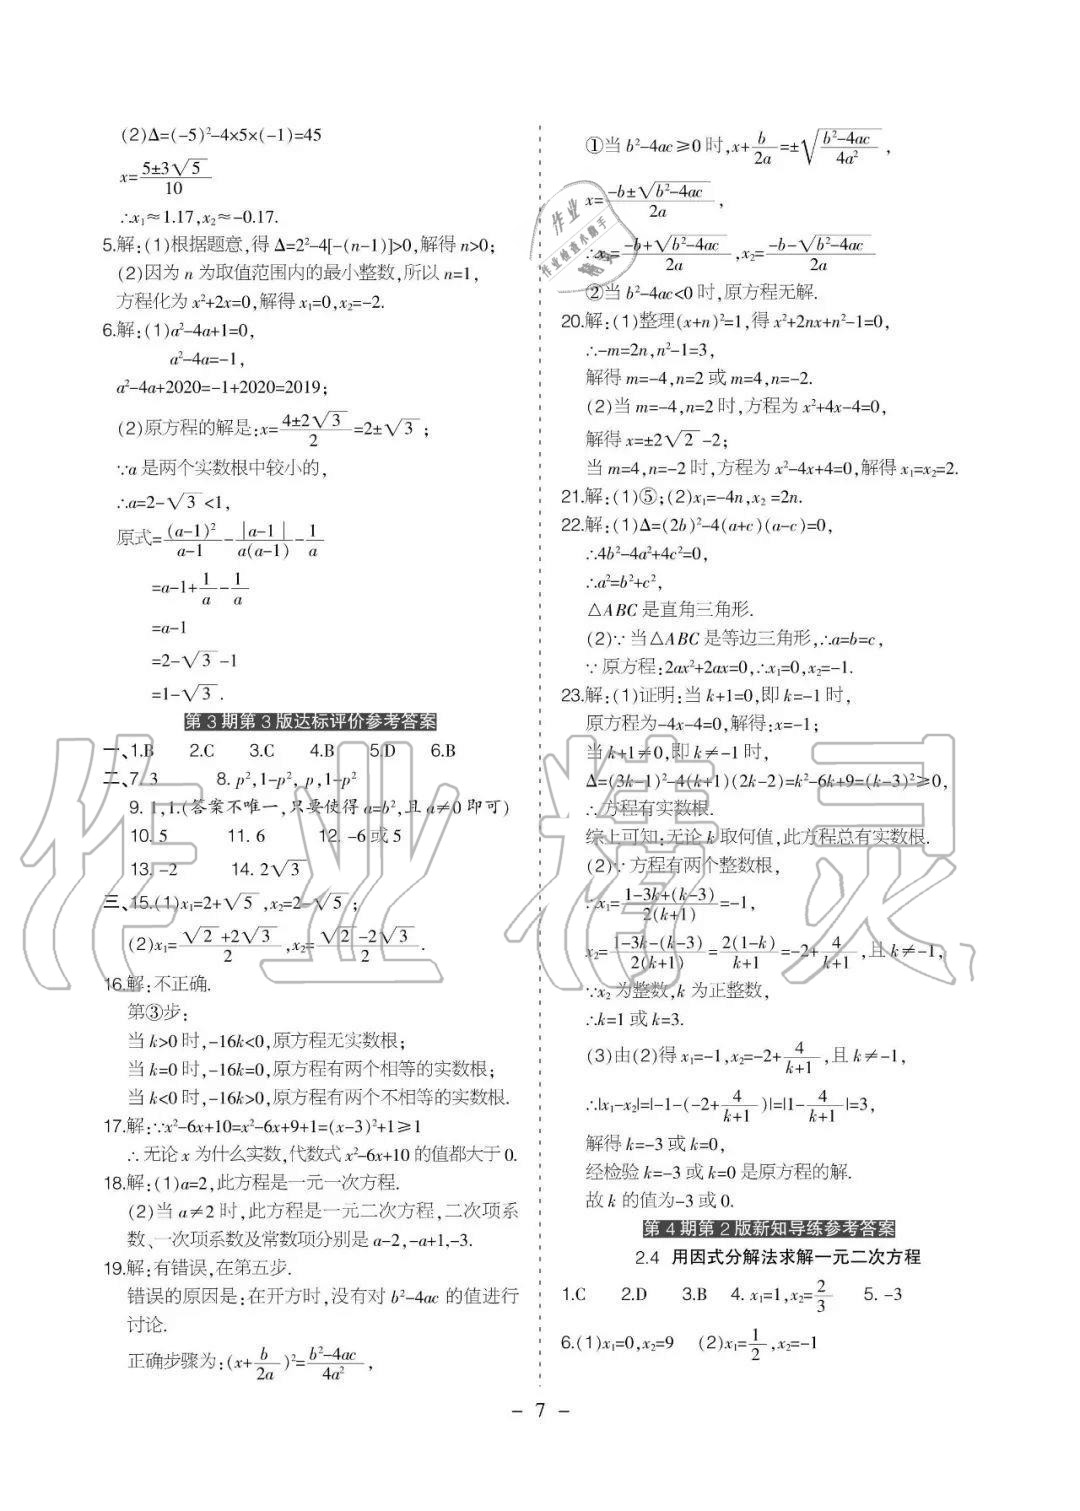 (2)Δ=(-5)²-4×5×(-1)=45
x=(5±3√5)/10
∴x₁≈1.17,x₂≈-0.17.
5.解:(1)根据题意,得 Δ=2²-4[-(n-1)]>0,解得n>0;
(2)因为 n 为取值范围内的最小整数,所以 n=1,
方程化为 x²+2x=0,解得 x₁=0,x₂=-2.
6.解:(1)a²-4a+1=0,
a²-4a=-1,
a²-4a+2020=-1+2020=2019;
(2)原方程的解是:x=(4±2√3)/2=2±√3;
∵a 是两个实数根中较小的,
∴a=2-√3<1,
原式=(a-1)²/(a-1)-|a-1|/(a(a-1))-1/a
=a-1+1/a-1/a
=a-1
=2-√3-1
=1-√3.
第3期第3版达标评价参考答案
一、1.B 2.C 3.C 4.B 5.D 6.B
二、7. 3 8. p²,1-p², p,1-p²
9. 1,1.(答案不唯一,只要使得 a=b²,且 a≠0 即可)
10. 5 11. 6 12. -6或5
13. -2 14. 2√3
三、15.(1)x₁=2+√5,x₂=2-√5;
(2)x₁=(√2+2√3)/2,x₂=(√2-2√3)/2.
16.解:不正确.
第③步:
当 k>0 时,-16k<0,原方程无实数根;
当 k=0 时,-16k=0,原方程有两个相等的实数根;
当 k<0 时,-16k>0,原方程有两个不相等的实数根.
17.解:∵x²-6x+10=x²-6x+9+1=(x-3)²+1≥1
∴无论 x 为什么实数,代数式 x²-6x+10 的值都大于 0.
18.解:(1)a=2,此方程是一元一次方程.
(2)当 a≠2 时,此方程是一元二次方程,二次项系
数、一次项系数及常数项分别是 a-2,-a+1,-3.
19.解:有错误,在第五步.
错误的原因是:在开方时,没有对 b²-4ac 的值进行
讨论.
正确步骤为:(x+b/2a)²=(b²-4ac)/4a²,
①当 b²-4ac≥0 时,x+b/2a=±√((b²-4ac)/4a²),
x=(-b±√(b²-4ac))/2a,
∴x₁=(-b+√(b²-4ac))/2a,x₂=(-b-√(b²-4ac))/2a
②当 b²-4ac<0 时,原方程无解.
20.解:(1)整理(x+n)²=1,得 x²+2nx+n²-1=0,
∴-m=2n,n²-1=3,
解得 m=-4,n=2 或 m=4,n=-2.
(2)当 m=-4,n=2 时,方程为 x²+4x-4=0,
解得 x=±2√2-2;
当 m=4,n=-2 时,方程为 x²-4x+4=0,解得 x₁=x₂=2.
21.解:(1)⑤;(2)x₁=-4n,x₂=2n.
22.解:(1)Δ=(2b)²-4(a+c)(a-c)=0,
∴4b²-4a²+4c²=0,
∴a²=b²+c²,
△ABC 是直角三角形.
(2)∵当△ABC 是等边三角形,∴a=b=c,
∵原方程:2ax²+2ax=0,∴x₁=0,x₂=-1.
23.解:(1)证明:当 k+1=0,即 k=-1 时,
原方程为-4x-4=0,解得:x=-1;
当 k+1≠0,即 k≠-1 时,
Δ=(3k-1)²-4(k+1)(2k-2)=k²-6k+9=(k-3)²≥0,
∴方程有实数根.
综上可知:无论 k 取何值,此方程总有实数根.
(2)∵方程有两个整数根,
∴x₁=(1-3k+(k-3))/(2(k+1))=-1,
x₂=(1-3k-(k-3))/(2(k+1))=2(1-k)/(k+1)=-2+4/(k+1),且 k≠-1,
∵x₂ 为整数,k 为正整数,
∴k=1 或 k=3.
(3)由(2)得 x₁=-1,x₂=-2+4/(k+1),且 k≠-1,
∴|x₁-x₂|=|-1-(-2+4/(k+1))|=|1-4/(k+1)|=3,
解得 k=-3 或 k=0,
经检验 k=-3 或 k=0 是原方程的解.
故 k 的值为-3 或 0.
第4期第2版新知导练参考答案
2.4 用因式分解法求解一元二次方程
1.C 2.D 3.B 4. x₁=1,x₂=2/3 5. -3
6.(1)x₁=0,x₂=9 (2)x₁=1/2,x₂=-1
- 7 -
作业精灵
作业
作业检查小助手
精灵